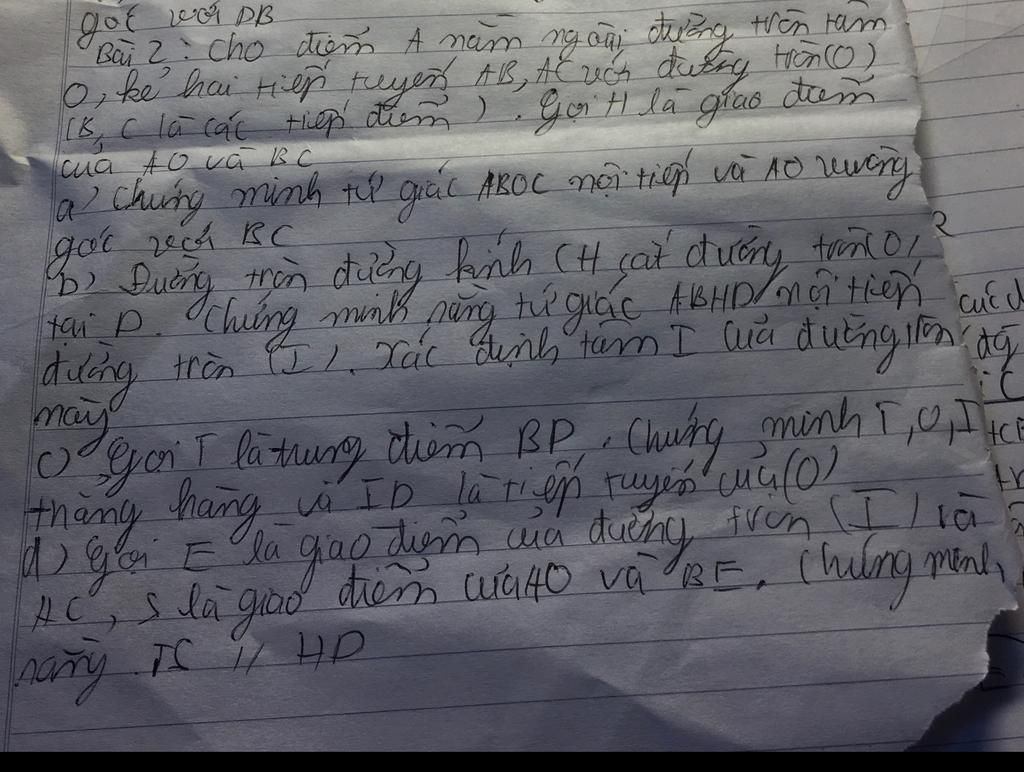 góc với DB
Bài 2: Cho điểm A nằm ngoài đường tròn tâm
O, kẻ hai tiếp tuyến AB, AC với đường tròn (O)
(B, C là các tiếp điểm). Gọi H là giao điểm
của AO và BC
a) Chứng minh tứ giác ABOC nội tiếp và AO vuông
góc với BC
b) Đường tròn đường kính CH cắt đường tròn (O)
tại D. Chứng minh rằng tứ giác ABHD nội tiếp
đường tròn (I). Xác định tâm I của đường tròn
này
c) Gọi T là trung điểm BD. Chứng minh T, O, I
thẳng hàng và ID là tiếp tuyến của (O)
d) Gọi E là giao điểm của đường tròn (I) và
AC, S là giao điểm của AO và BE. Chứng minh
rằng TS // HD
2